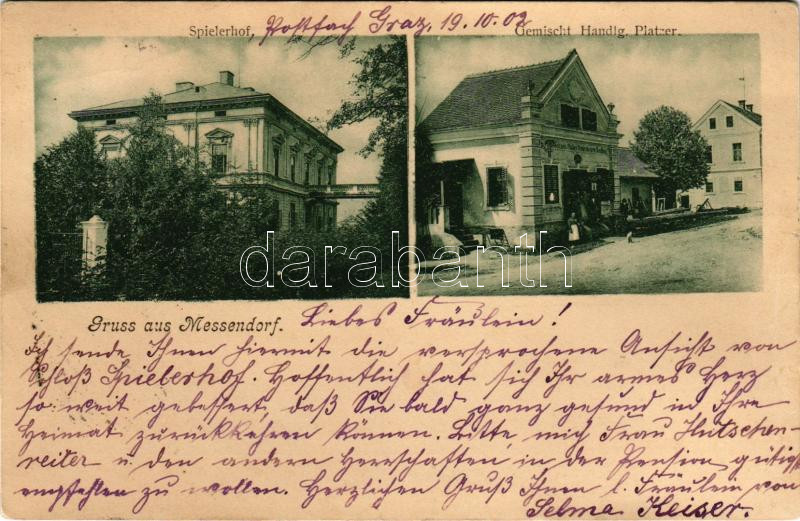 Spielerhof. Postfach Graz, 19.10.02 Gemischt Handlg. Platzer.
darabanth
Gruss aus Messendorf. Liebes Fräulein!
Ich sende Ihnen hiermit die versprochene Ansicht von
Schloß Spielerhof. Hoffentlich hat sich Ihr armes Herz
so weit gebessert, daß Sie bald ganz gesund in Ihre
Heimat zurückkehren können. Bitte, mich Frau Hutschen-
reiter u. den andern Herrschaften in der Pension gütigst
empfehlen zu wollen. Herzlichen Gruß Ihnen l. Fräulein von
Selma Keiser.